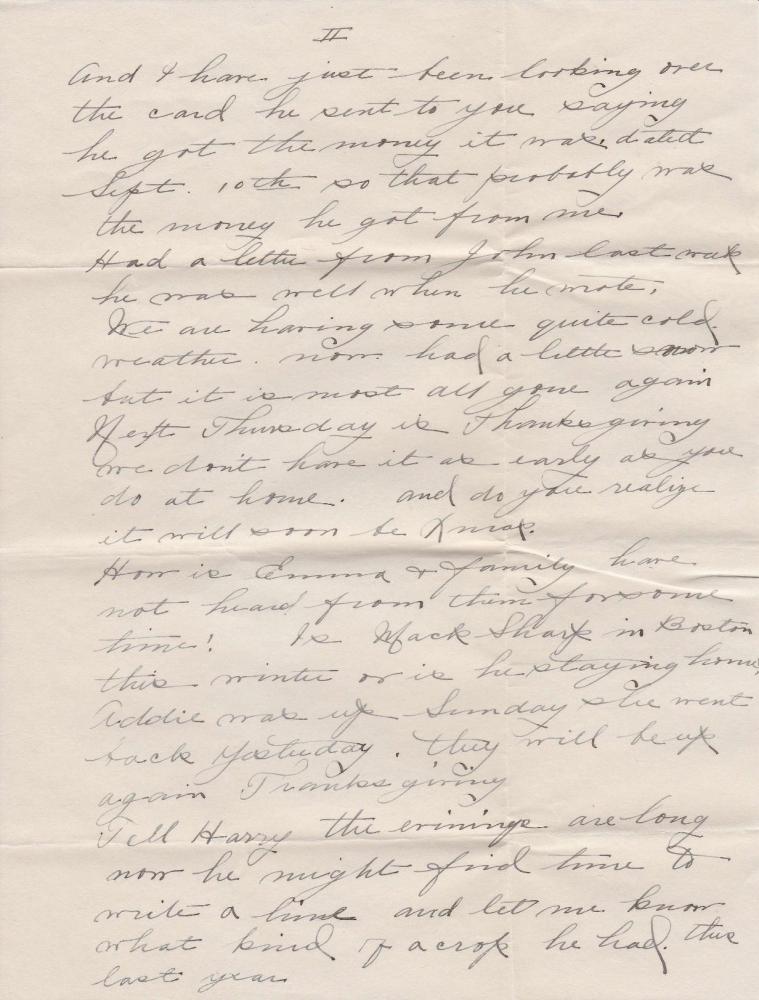 II
And I have just been looking over
the card he sent to you saying
he got the money it was dated
Sept. 10th so that probably was
the money he got from me.
Had a letter from John last week
he was well when he wrote.
We are having some quite cold
weather. now had a little snow
but it is most all gone again
Next Thursday is Thanksgiving
we don't have it as early as you
do at home. and do you realize
it will soon be Xmas.
How is Emma & family have
not heard from them for some
time! Is Mack Sharp in Boston
this winter or is he staying home,
Addie was up Sunday she went
back yesterday. they will be up
again Thanksgiving
Tell Harry the evinings are long
now he might find time to
write a line and let me know
what kind of a crop he had. this
last year